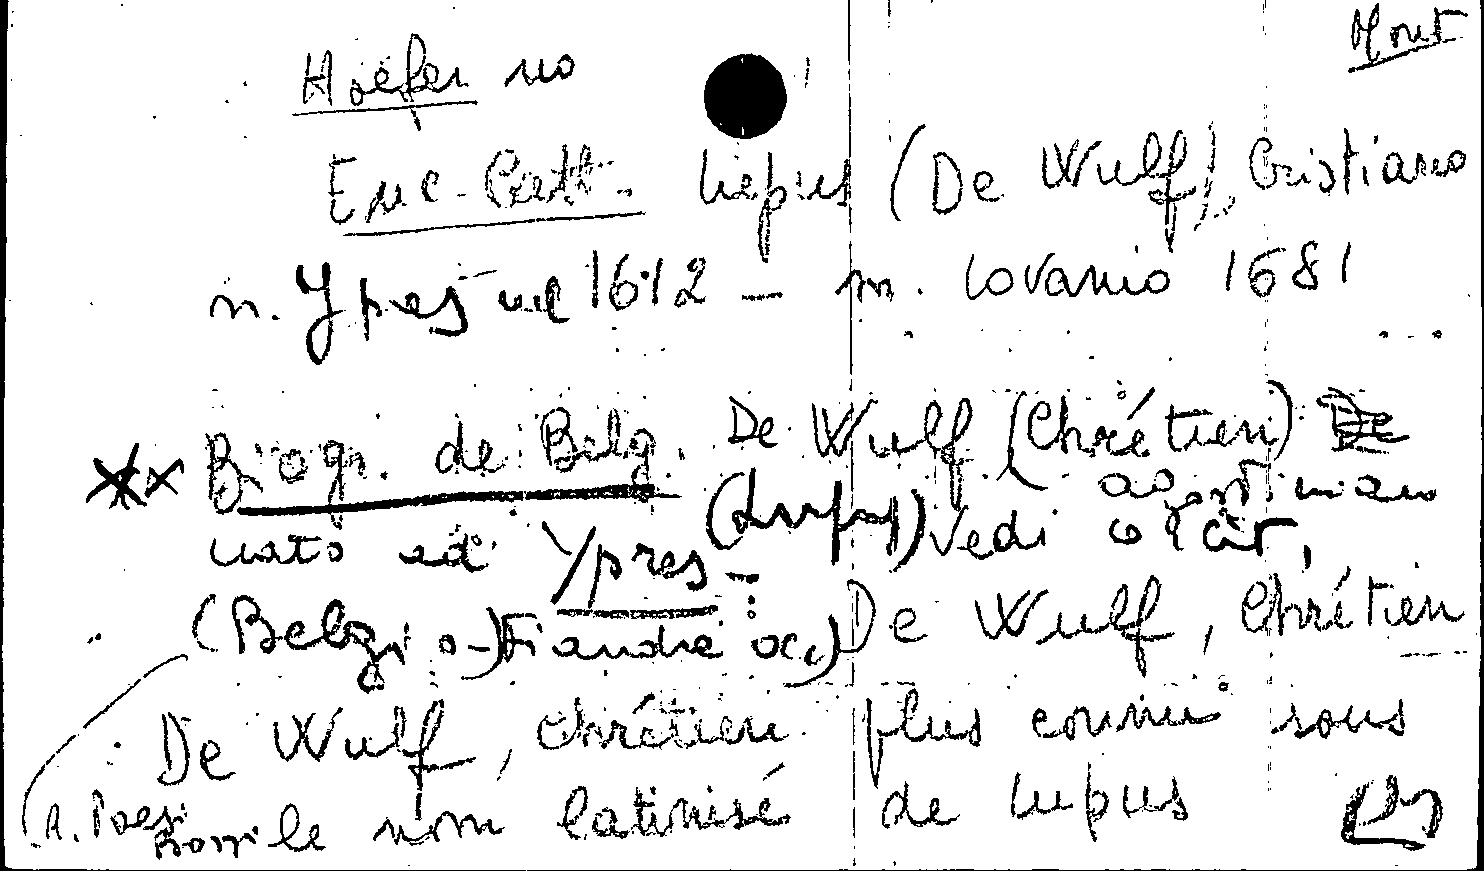 Mont
Hoefer no
Enc. Catt. Lupus (De Wulf), Cristiano
n. Ypres nel 1612 – m. Lovanio 1681
Biogr. de Belg. De Wulf (Chrétien) De
agostiniano
nato ad Ypres – (Lupus) vedi
(Belgio-) Fiandre occ) De Wulf, Chrétien
De Wulf, Chrétien plus connu sous
le nom latinisé de Lupus